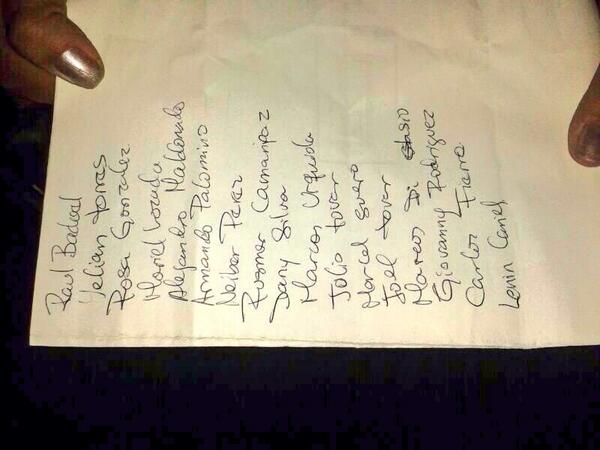 Raul Badaal
Yelian torres
Rosa Gonzalez
Mariel Lozada
Alejandro Maldonado
Armando Palomino
Neiber Perez
Rosmer Camaripaz
Dany Silva
Marcos Urquida
Julio tovar
Marcel suero
Joel tovar
Marcos Di stasio
Giovanny Rodriguez
Carlos Fierro
Lenin